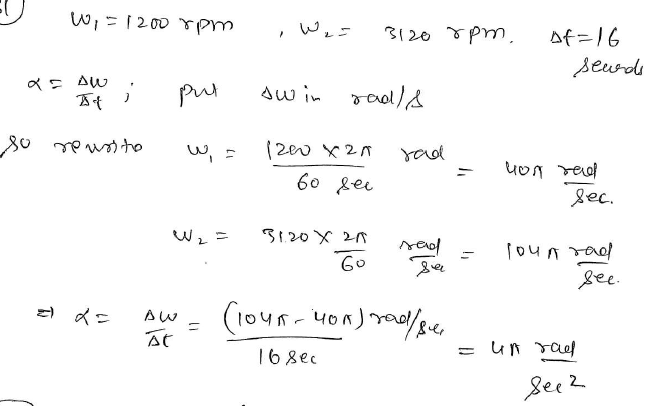 ω₁ = 1200 rpm , ω₂ = 3120 rpm. Δt = 16 seconds
α = Δω/Δt ; put Δω in rad/s
so rewrite ω₁ = 1200 × 2π/60 sec rad = 40π rad/sec.
ω₂ = 3120 × 2π/60 rad/sec = 104π rad/sec.
⇒ α = Δω/Δt = (104π - 40π) rad/sec/16 sec = 4π rad/sec²